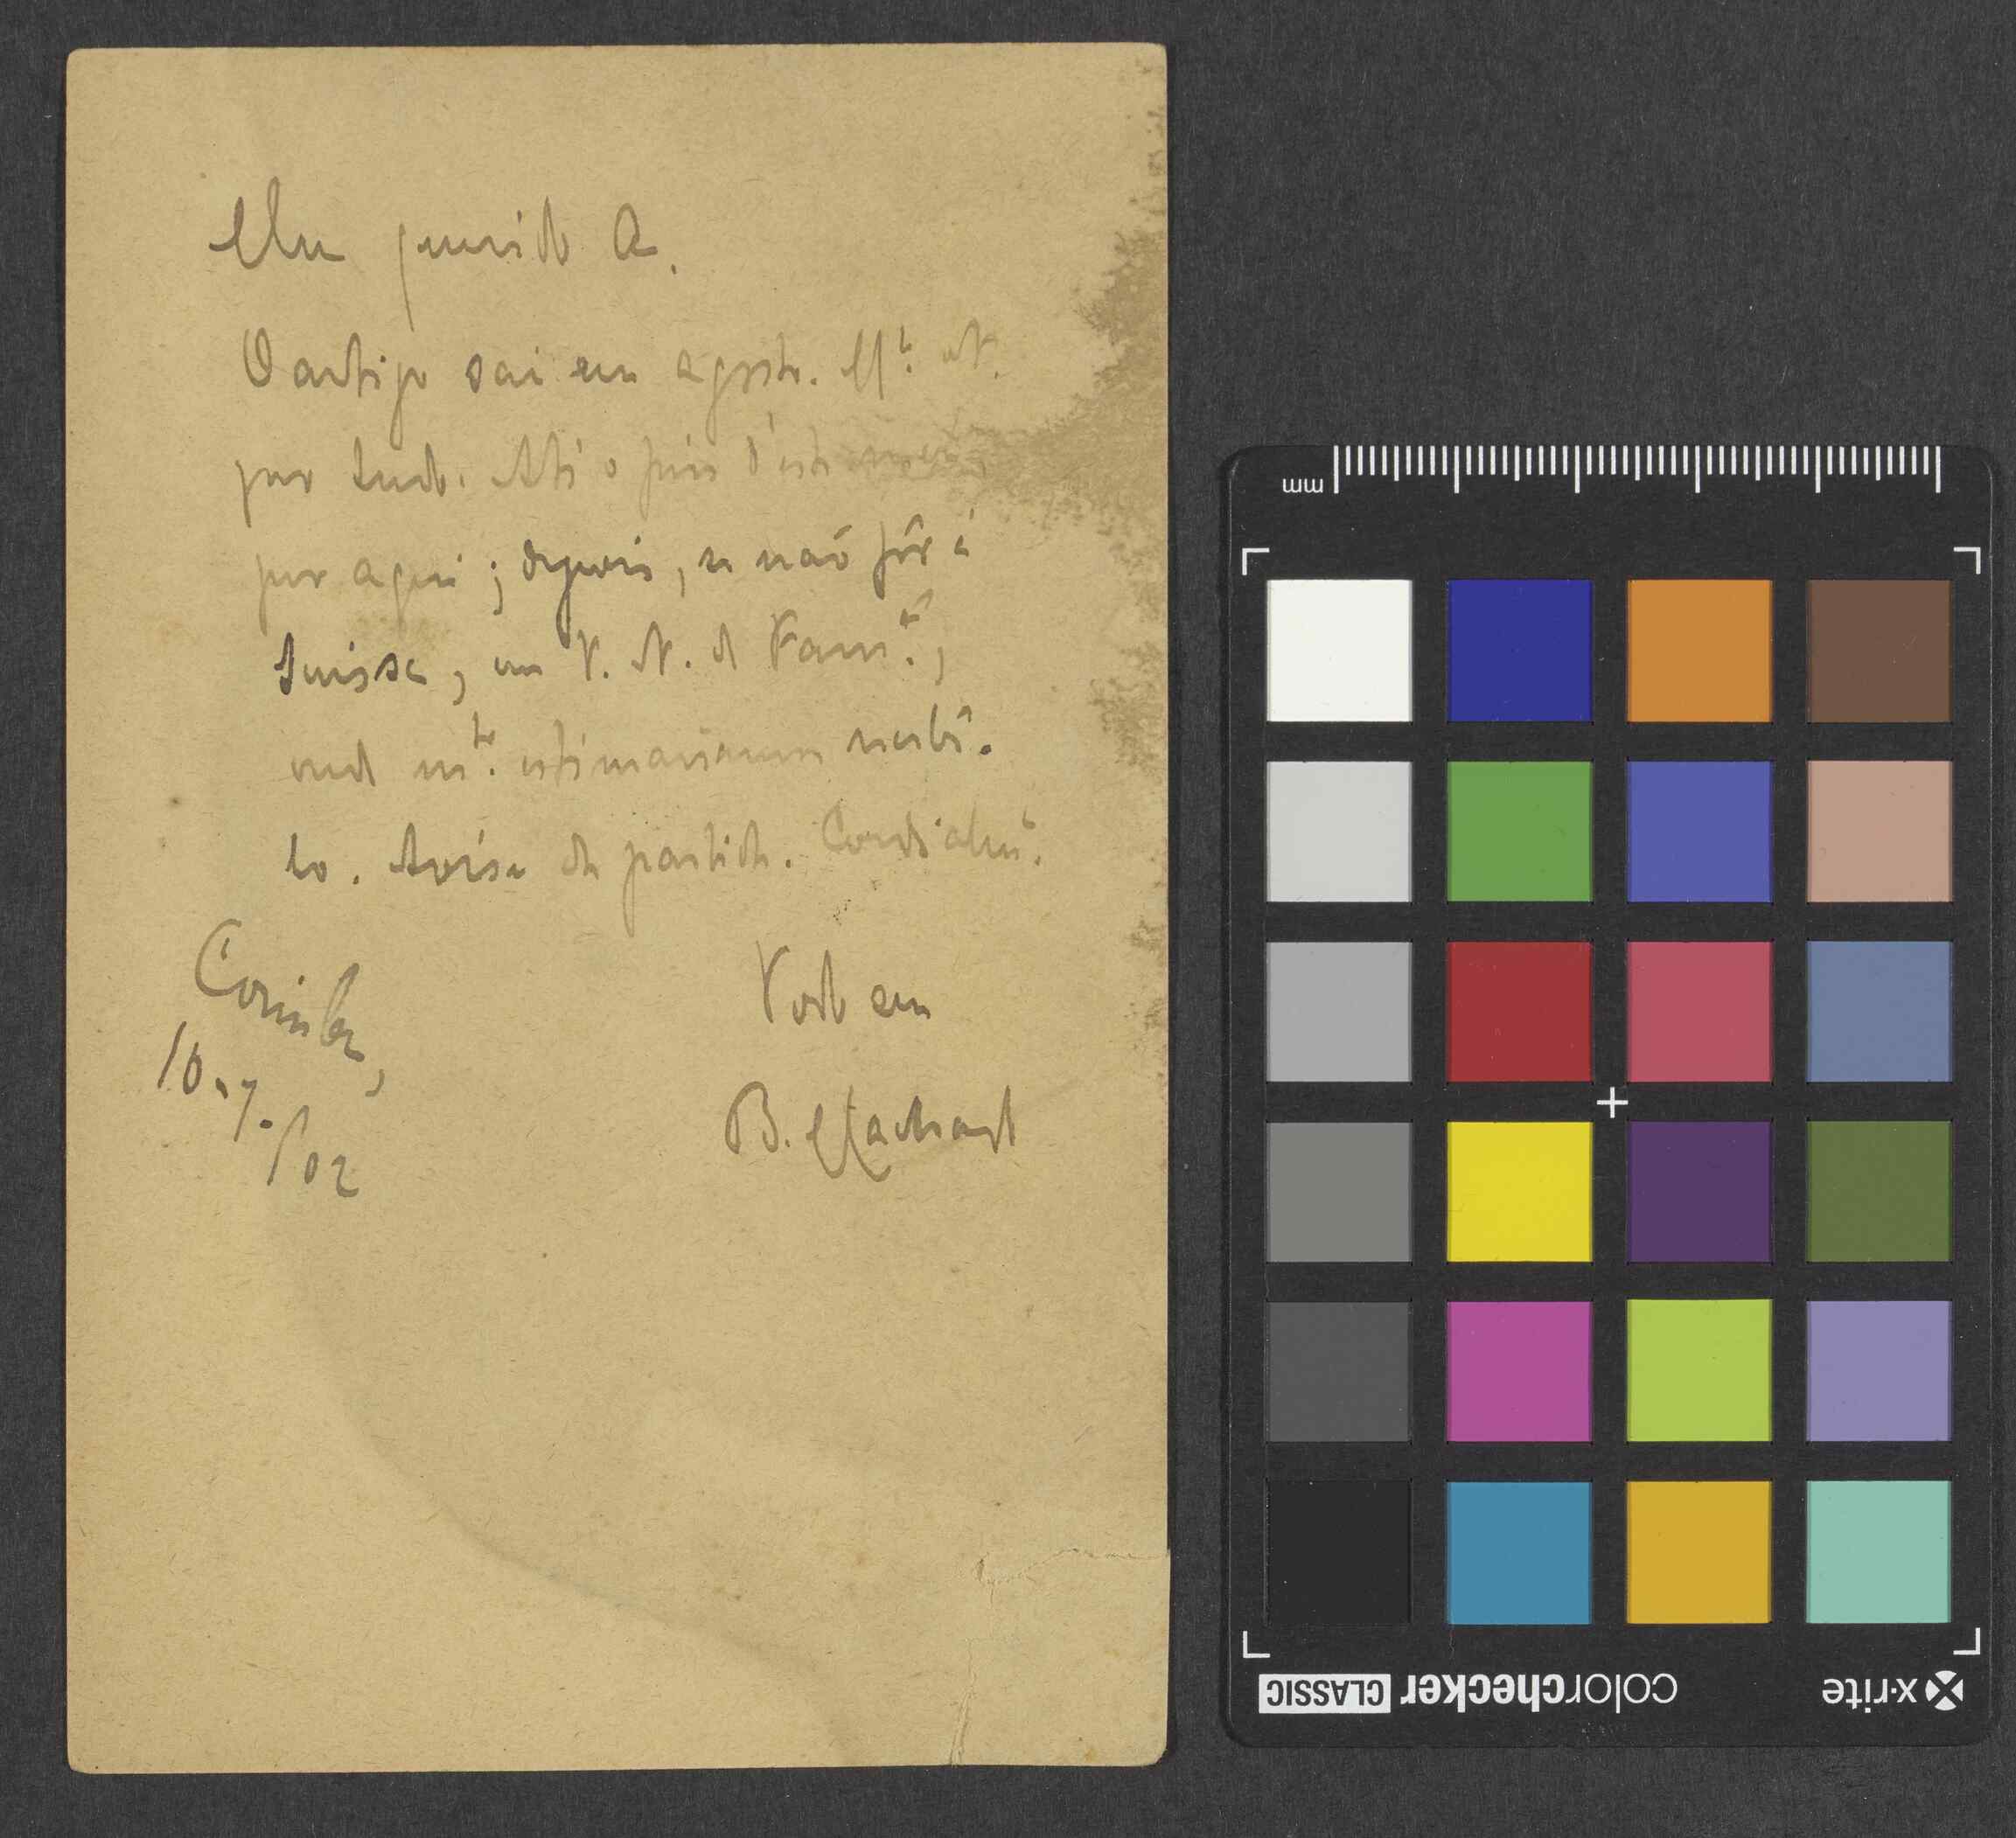 Meu querido A.
O artigo sai em agosto. M.to
por tudo. Até o fim d'este mez
por aqui; depois, se não fôr á
Suissa, em V. N. de Fam.,
onde m.to estimariamos recebê-
lo. Avise da partida. Cordialm.te
Coimbra,
10.7.
/02
Todo seu
B. Machado
mm
colorchecker CLASSIC
x-rite